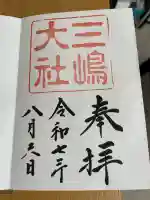 奉拝
三嶋
大社
令和七年
八月六日